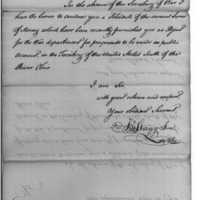 In the absence of the Secretary of War I
have the honor to enclose you a Schedule of the several sums
of Money which have been recently furnished you as Agent
for the War department for payments to be made on public
Account, in the Territory of the United States South of the
River Ohio
I am Sir,
with great esteem and respect
Your obedient Servant,
Jno Stagg Junr